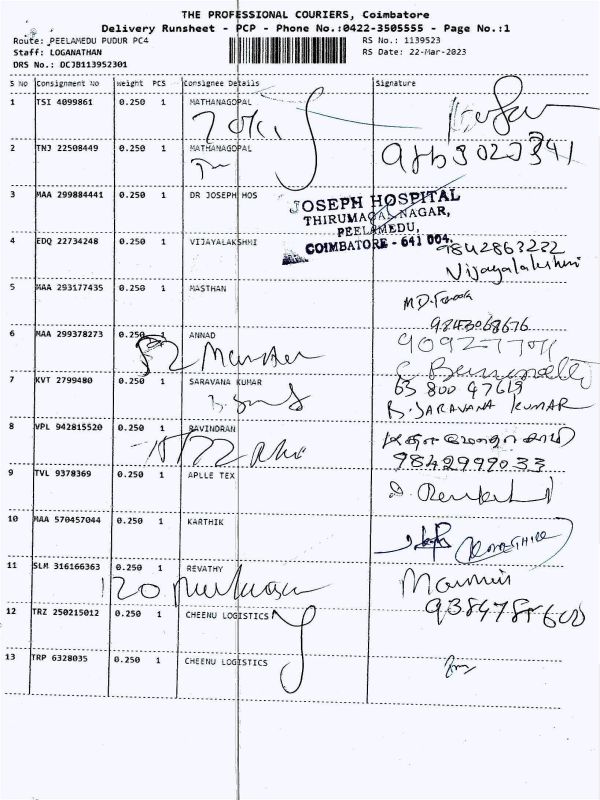 THE PROFESSIONAL COURIERS, Coimbatore
Delivery Runsheet - PCP - Phone No.:0422-3505555 - Page No.:1
Route: PEELAMEDU PUDUR PC4
RS No.: 1139523
Staff: LOGANATHAN
RS Date: 22-Mar-2023
DRS No.: DCJB113952301
S No Consignment No weight PCS Consignee Details Signature
1 TSI 4099861 0.250 1 MATHANAGOPAL
2 TNJ 22508449 0.250 1 MATHANAGOPAL
3 MAA 299884441 0.250 1 DR JOSEPH HOS
JOSEPH HOSPITAL
THIRUMAGAL NAGAR,
PEELAMEDU,
COIMBATORE - 641 004.
4 EDQ 22734248 0.250 1 VIJAYALAKSHMI
9842863232
Vijayalakshmi
5 MAA 293177435 0.250 1 MASTHAN
9843068676
6 MAA 299378273 0.250 1 ANNAD
7 KVT 2799480 0.250 1 SARAVANA KUMAR
63 800 47619
B. SARAVANA KUMAR
8 VPL 942815520 0.250 1 RAVINDRAN
9842999033
9 TVL 9378369 0.250 1 APLLE TEX
10 MAA 570457044 0.250 1 KARTHIK
11 SLM 316166363 0.250 1 REVATHY
120
12 TRZ 250215012 0.250 1 CHEENU LOGISTICS
13 TRP 6328035 0.250 1 CHEENU LOGISTICS